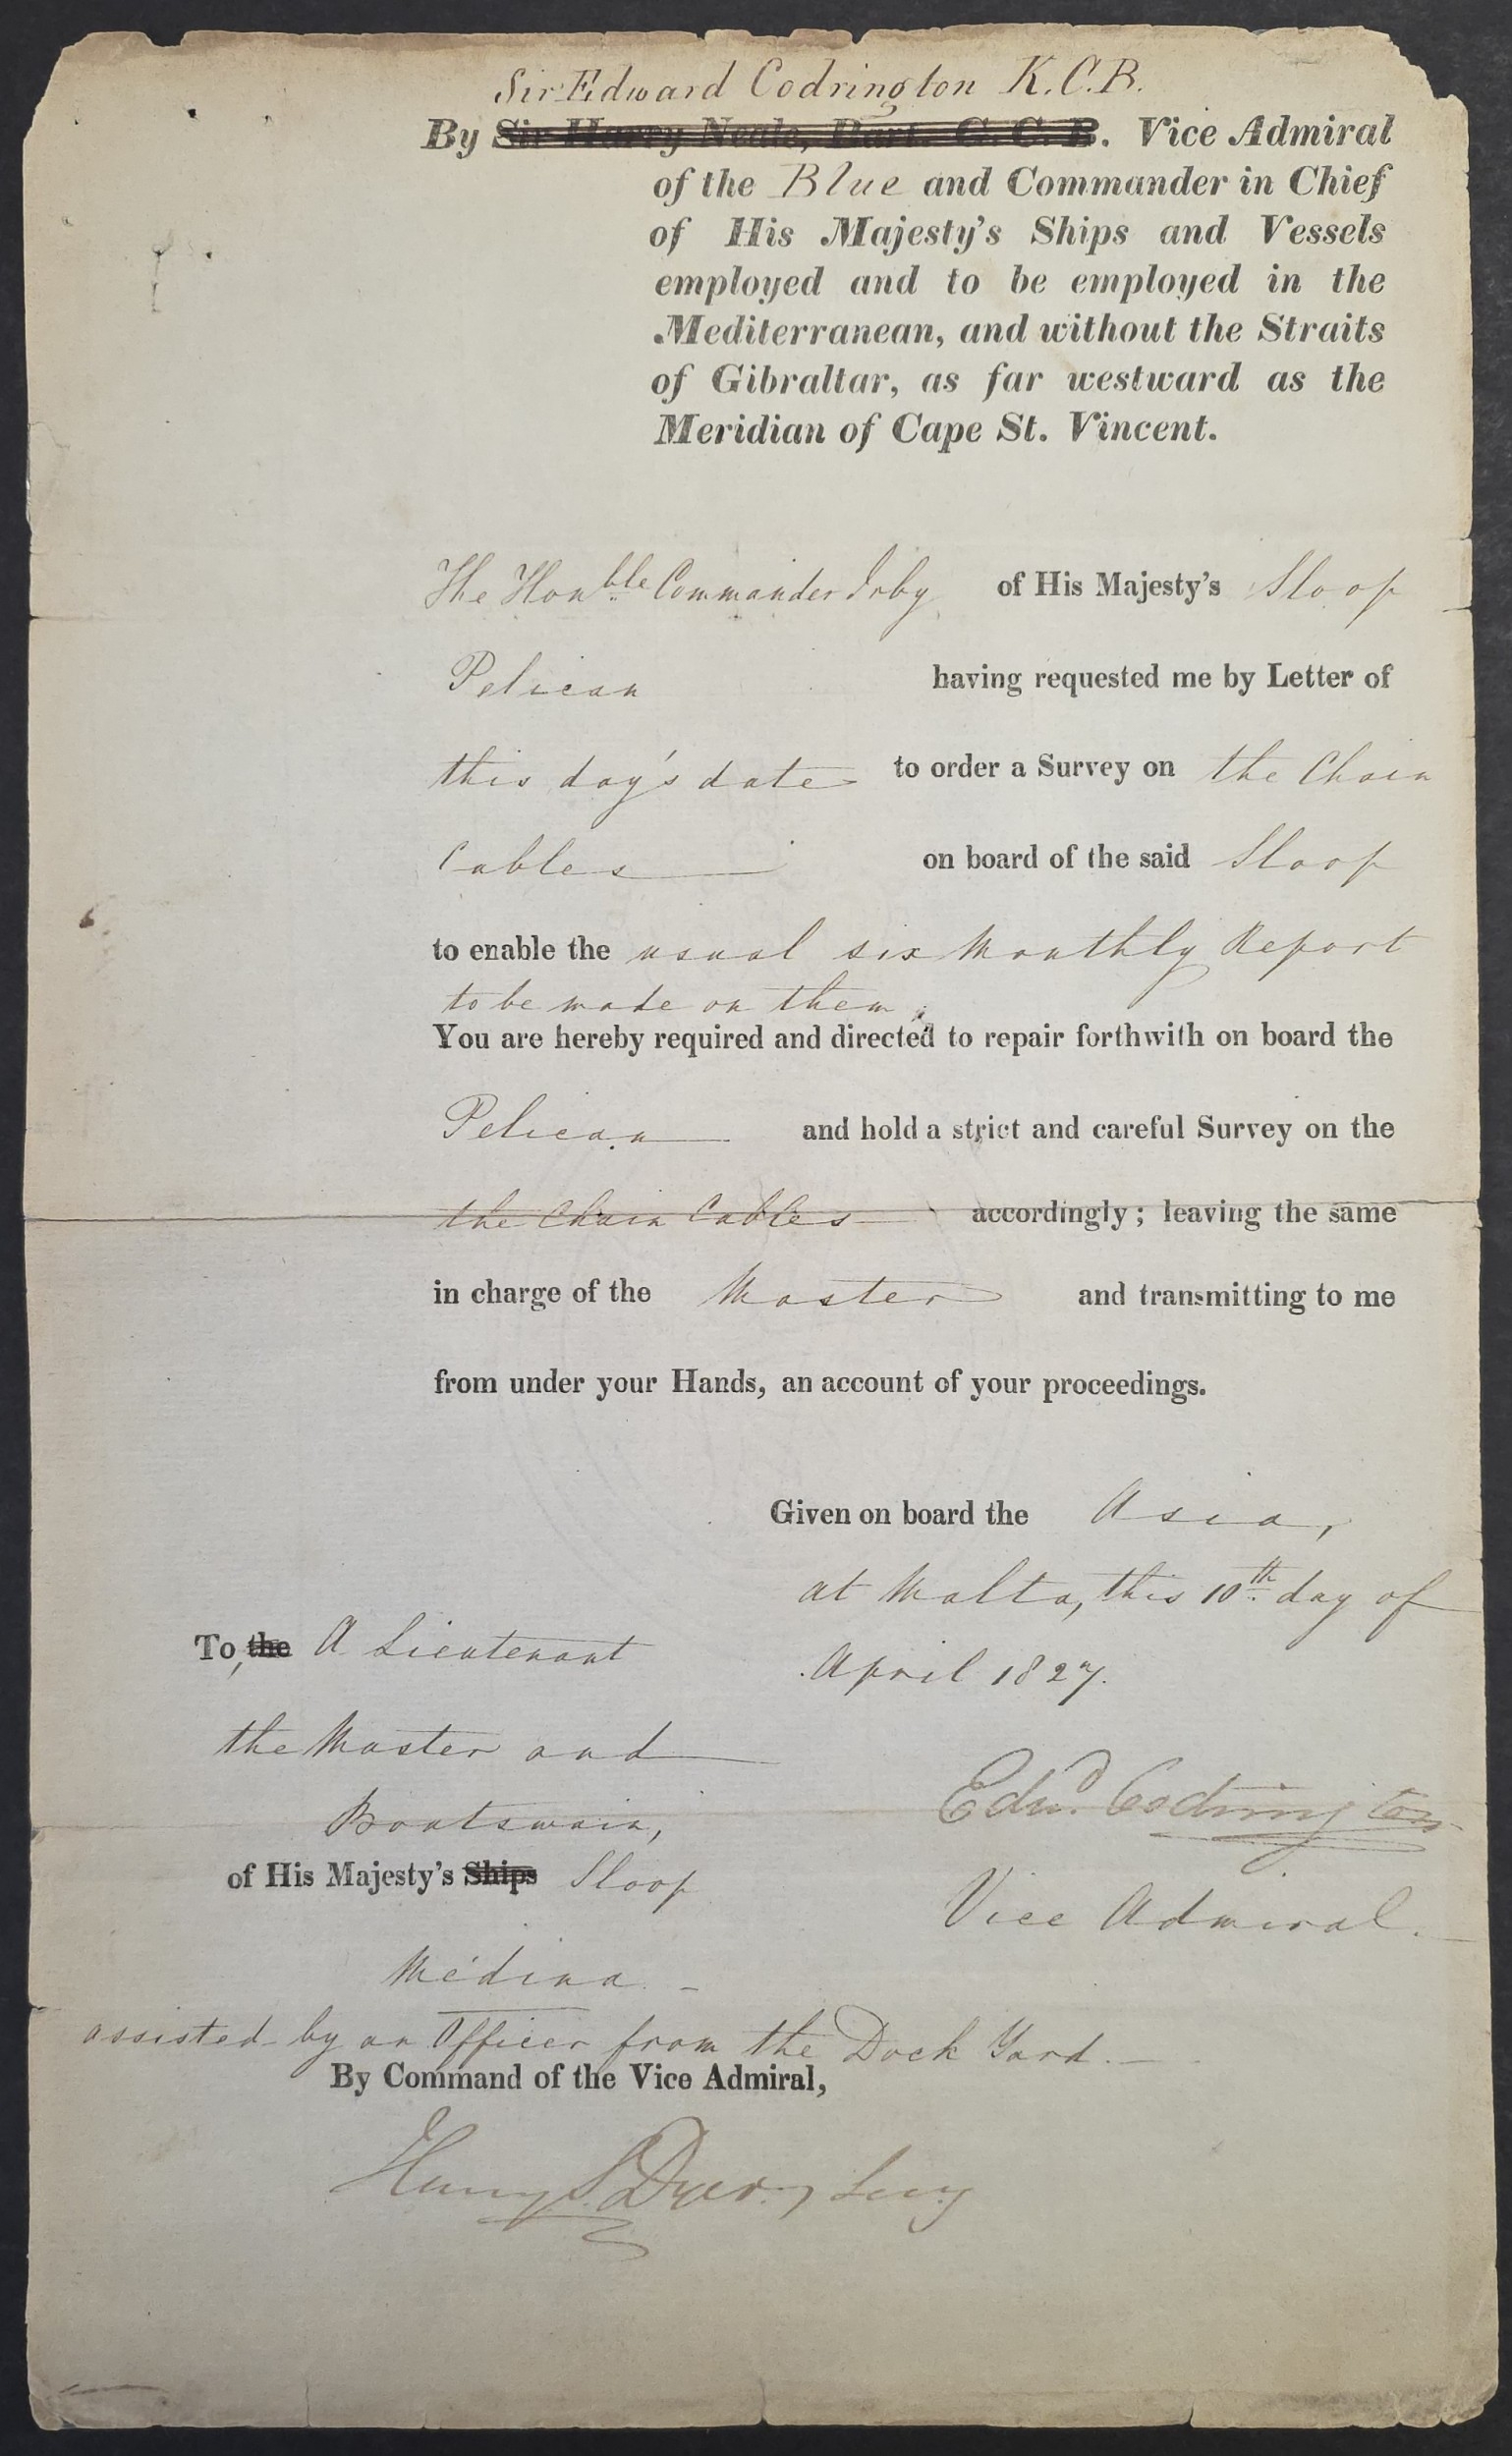 Sir Edward Codrington K.C.B.
By Sir Harry Neale, Bart. G. C. B. Vice Admiral
of the Blue and Commander in Chief
of His Majesty's Ships and Vessels
employed and to be employed in the
Mediterranean, and without the Straits
of Gibraltar, as far westward as the
Meridian of Cape St. Vincent.
The Honble Commander Irby of His Majesty's Sloop
Pelican having requested me by Letter of
this day's date to order a Survey on the Chain
Cables on board of the said Sloop
to enable the usual six Monthly Report
to be made on them,
You are hereby required and directed to repair forthwith on board the
Pelican and hold a strict and careful Survey on the
the Chain Cables accordingly; leaving the same
in charge of the Master and transmitting to me
from under your Hands, an account of your proceedings.
Given on board the Asia,
at Malta, this 10th day of
April 1827.
To, the A Lieutenant
the Master and
Boatswain,
of His Majesty's Ships Sloop
Medina
Edwd. Codrington
Vice Admiral.
assisted by an Officer from the Dock Yard.
By Command of the Vice Admiral,
Henry S. Dyer, Secy